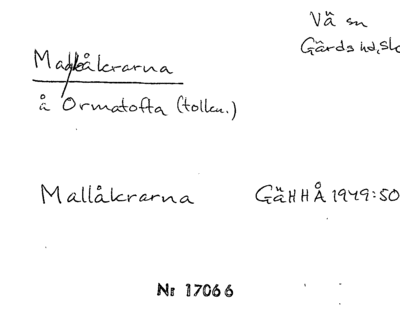 Vä sn
Gärds hd, Sk
Mallåkrarna
å Ormatofta (tollen.)
Mallåkrarna GäHHÅ 1949:50
Nr 17066